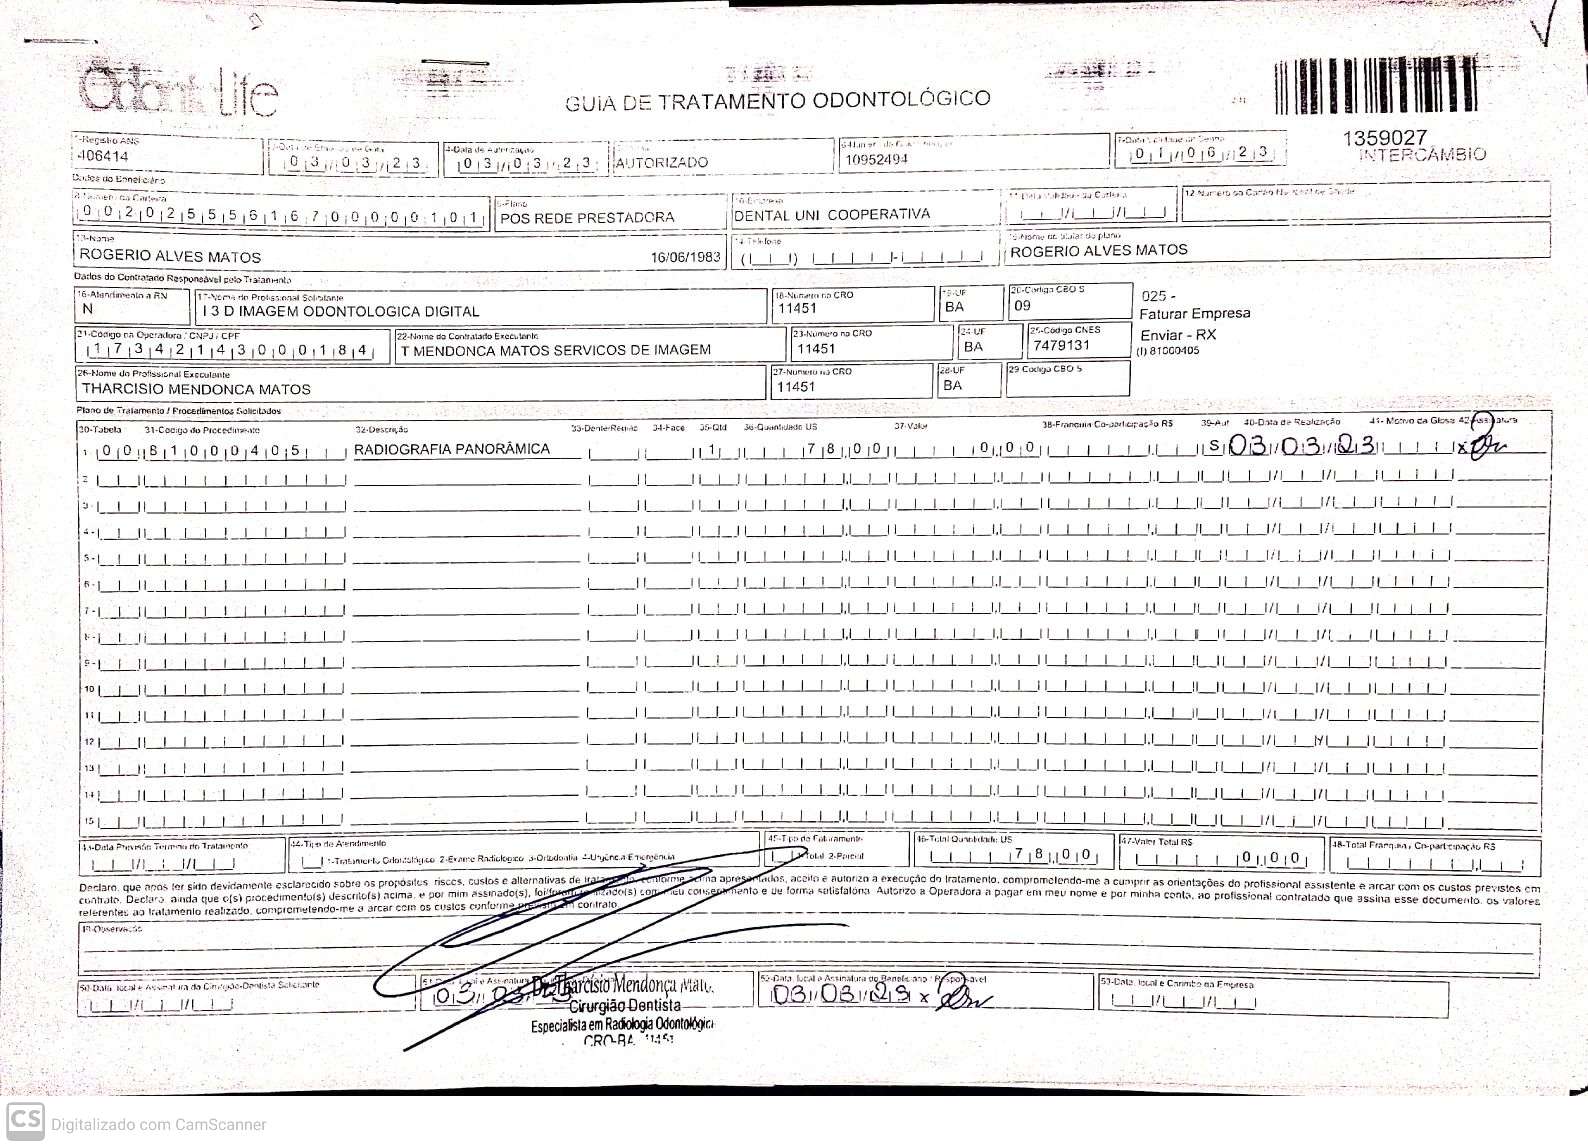 OdontoLife
GUIA DE TRATAMENTO ODONTOLÓGICO
1359027
INTERCÂMBIO
1-Registro ANS
406414
03/03/23
4-Data de Autorização
03/03/23
AUTORIZADO
10952494
01/06/23
Dados do Beneficiário
8-Número da Carteira
00202555616700000101
9-Plano
POS REDE PRESTADORA
10-Empresa
DENTAL UNI COOPERATIVA
11-Data Validade da Carteira
12-Numero do Cartão Nacional de Saúde
13-Nome
ROGERIO ALVES MATOS 16/06/1983
14-Telefone
15-Nome do titular do plano
ROGERIO ALVES MATOS
Dados do Contratado Responsável pelo Tratamento
16-Atendimento a RN
N
17-Nome do Profissional Solicitante
I 3 D IMAGEM ODONTOLOGICA DIGITAL
18-Numero no CRO
11451
19-UF
BA
20-Codigo CBO S
09
025 -
Faturar Empresa
Enviar - RX
(I) 81000405
21-Código na Operadora / CNPJ / CPF
17342143000184
22-Nome do Contratado Executante
T MENDONCA MATOS SERVICOS DE IMAGEM
23-Número no CRO
11451
24-UF
BA
25-Codigo CNES
7479131
26-Nome do Profissional Executante
THARCISIO MENDONCA MATOS
27-Numero no CRO
11451
28-UF
BA
29 Codigo CBO S
Plano de Tratamento / Procedimentos Solicitados
30-Tabela 31-Codigo do Procedimento 32-Descrição 33-Dente/Região 34-Face 35-Qtd 36-Quantidade US 37-Valor 38-Franquia Co-participação R$ 39-Aut 40-Data de Realização 41- Motivo da Glosa 42-Assinatura
1 00 81000405 RADIOGRAFIA PANORÂMICA 1 78,00 0,00 S 03/03/23 x
2
3-
4-
5-
6-
7-
8-
9-
10
11
12
13
14
15
43-Data Previsão Termino do Tratamento
44-Tipo de Atendimento
1-Tratamento Odontológico 2-Exame Radiologico 3-Ortodontia 4-Urgência Emergência
45-Tipo de Faturamento
1-Total 2-Parcial
46-Total Quantidade US
78,00
47-Valor Total R$
0,00
48-Total Franquia / Co-participação R$
Declaro, que após ter sido devidamente esclarecido sobre os propósitos, riscos, custos e alternativas de tratamento, conforme acima apresentados, aceito e autorizo a execução do tratamento, comprometendo-me a cumprir as orientações do profissional assistente e arcar com os custos previstos em
contrato. Declaro, ainda que o(s) procedimento(s) descrito(s) acima, e por mim assinado(s), foi/foram realizado(s) com meu consentimento e de forma satisfatória. Autorizo a Operadora a pagar em meu nome e por minha conta, ao profissional contratado que assina esse documento, os valores
referentes ao tratamento realizado, comprometendo-me a arcar com os custos conforme previsto em contrato.
49-Observação
50-Data, local e Assinatura do Cirurgião-Dentista Solicitante
03/03/23
Dr. Tharcísio Mendonça Matos
Cirurgião Dentista
Especialista em Radiologia Odontológica
CRO-BA 11451
52-Data, local e Assinatura do Beneficiário / Responsável
03/03/23 x
53-Data, local e Carimbo da Empresa
CS Digitalizado com CamScanner